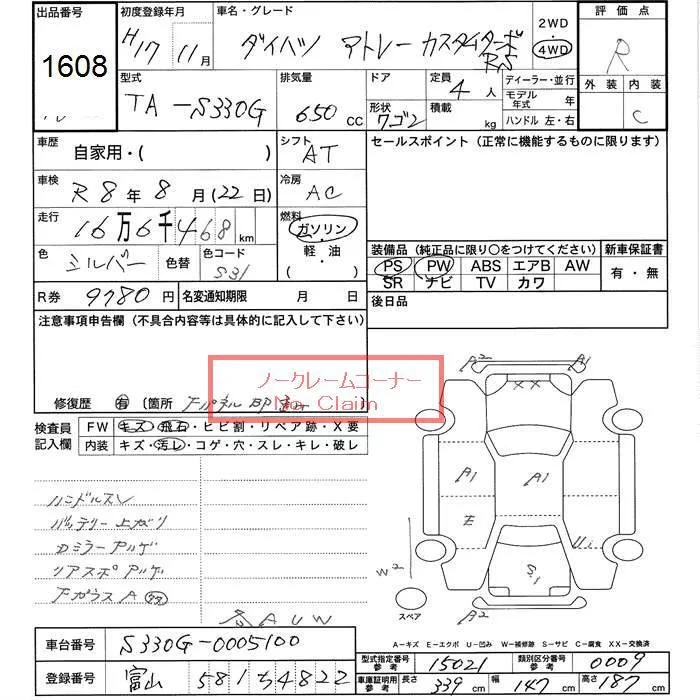 出品番号
1608
初度登録年月
H17 11月
車名・グレード
ダイハツ アトレー カスタムターボ RS
2WD
4WD
評価点
R
外装 内装
C
型式
TA-S330G
排気量
650 cc
ドア
形状
ワゴン
定員
4人
積載
kg
ディーラー・並行
モデル年式 年
ハンドル 左・右
車歴
自家用・( )
シフト
AT
セールスポイント (正常に機能するものに限ります)
車検
R8年8月(22日)
冷房
AC
走行
16万6千468km
燃料
ガソリン
軽・油
( )
色
シルバー
色替
色コード
S31
装備品 (純正品に限り○をつけてください)
PS PW ABS エアB AW
SR ナビ TV カワ
新車保証書
有・無
R券 9780円
名変通知期限 月 日
後日品
注意事項申告欄 (不具合内容等は具体的に記入して下さい)
ノークレームコーナー
No Claim
修復歴 有 〔箇所
検査員記入欄
FW キズ・飛石・ヒビ割・リペア跡・X要
内装 キズ・汚レ・コゲ・穴・スレ・キレ・破レ
ハンドルスレ
バッテリー上ガリ
Dミラー
リアスポ
Fガラス A
AUW
A2 A1
XX
A1 A1
E
W2
S1
A2
スペア
A-キズ E-エクボ U-凹み W-補修跡 S-サビ C-腐食 XX-交換済
車台番号 S330G-0005100
登録番号 富山 581 ち 4822
型式指定番号 参考 15021
類別区分番号 参考 0009
車庫証明用 参考 長さ 339cm 幅 147cm 高さ 187cm